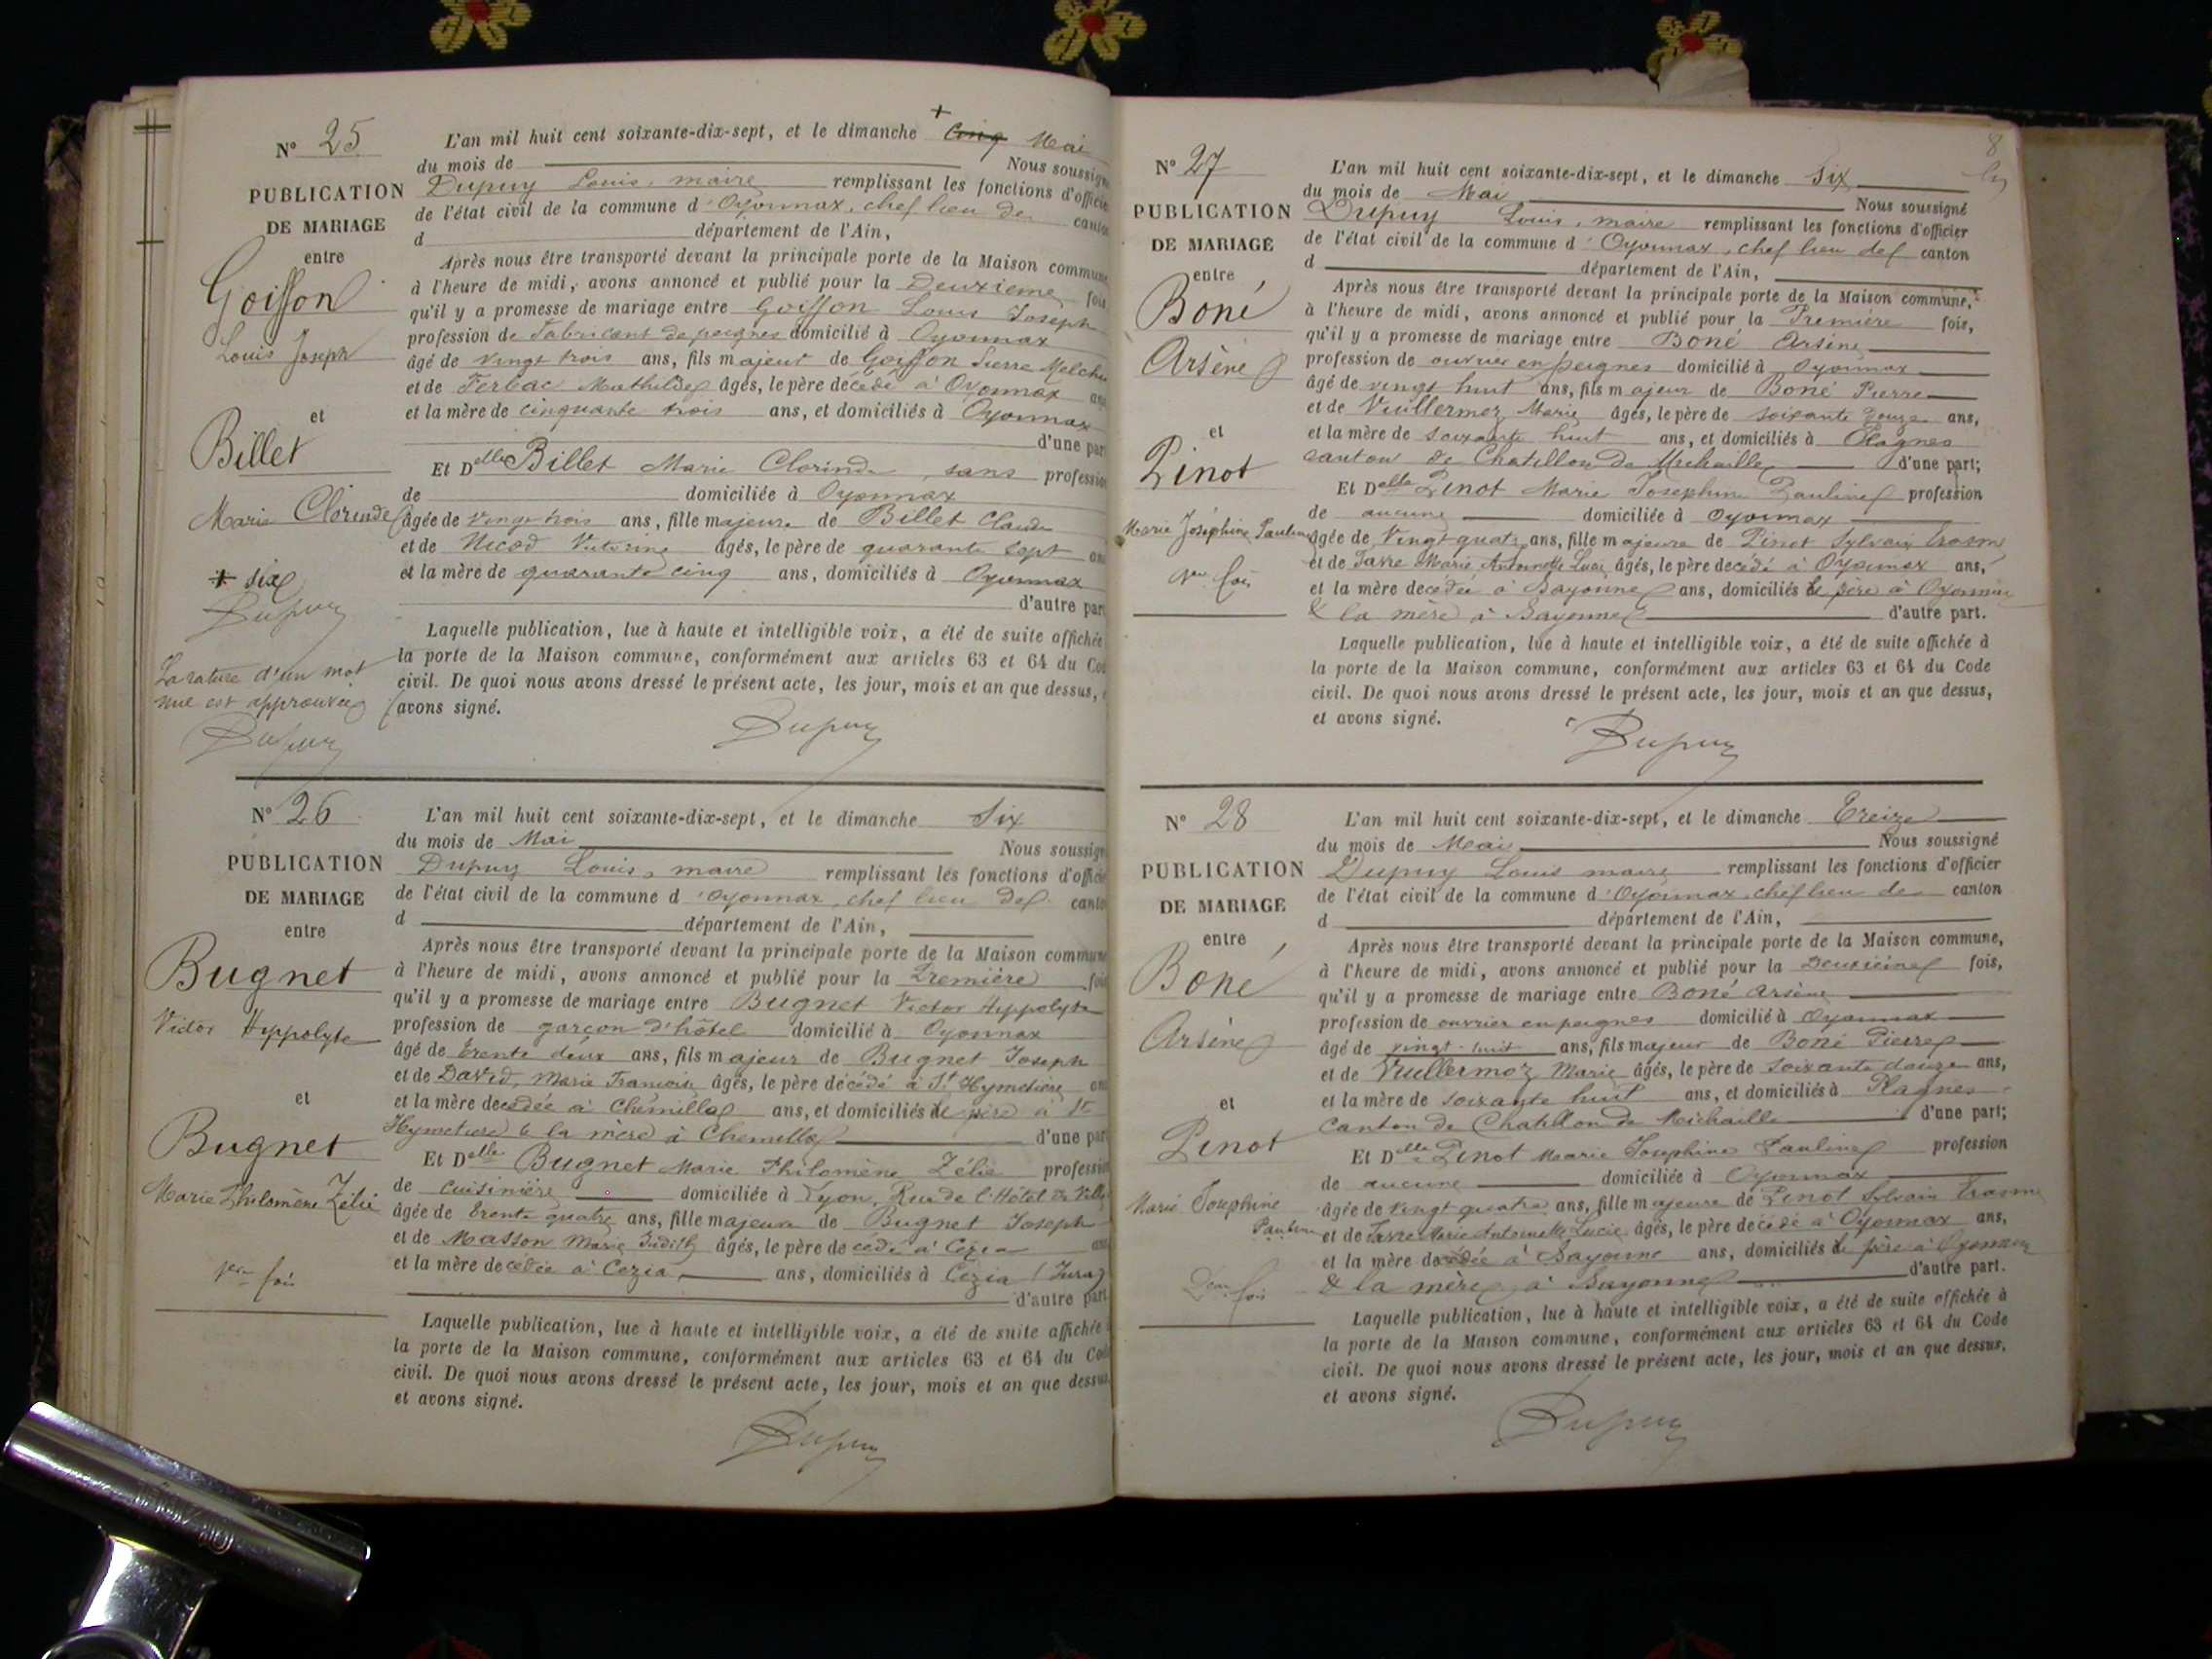 N° 25
PUBLICATION
DE MARIAGE
entre
Goiffon
Louis Joseph
et
Billet
Marie Clorinde
+ six
Dupuy
La rature d'un mot
nul est approuvée
Dupuy
L'an mil huit cent soixante-dix-sept, et le dimanche + Cinq Mai
du mois de Nous soussign
Dupuy Louis, maire remplissant les fonctions d'officie
de l'état civil de la commune d'Oyonnax, chef lieu de canton
d département de l'Ain,
Après nous être transporté devant la principale porte de la Maison commune
à l'heure de midi, avons annoncé et publié pour la Deuxième fois
qu'il y a promesse de mariage entre Goiffon Louis Joseph
profession de Fabricant de peignes domicilié à Oyonnax
âgé de vingt trois ans, fils majeur de Goiffon Pierre
et de Mathilde âgés, le père décédé à Oyonnax ans
et la mère de cinquante trois ans, et domiciliés à Oyonnax
d'une part
Et Delle Billet Marie Clorinde, sans profession
de domiciliée à Oyonnax
âgée de vingt trois ans, fille majeure de Billet Claude
et de Nicod Victorine âgés, le père de quarante sept ans
et la mère de quarante cinq ans, domiciliés à Oyonnax
d'autre part
Laquelle publication, lue à haute et intelligible voix, a été de suite affichée
la porte de la Maison commune, conformément aux articles 63 et 64 du Cod
civil. De quoi nous avons dressé le présent acte, les jour, mois et an que dessus, e
avons signé.
Dupuy
N° 26
PUBLICATION
DE MARIAGE
entre
Bugnet
Victor Hyppolyte
et
Bugnet
Marie Philomène Zélie
1ère fois
L'an mil huit cent soixante-dix-sept, et le dimanche Six
du mois de Mai Nous soussign
Dupuy Louis, maire remplissant les fonctions d'officie
de l'état civil de la commune d'Oyonnax, chef lieu de canton
d département de l'Ain,
Après nous être transporté devant la principale porte de la Maison commune
à l'heure de midi, avons annoncé et publié pour la Première fois
qu'il y a promesse de mariage entre Bugnet Victor Hyppolyte
profession de garçon d'hôtel domicilié à Oyonnax
âgé de trente deux ans, fils majeur de Bugnet Joseph
et de David, Marie Françoise âgés, le père décédé à St Hymetière ans
et la mère décédée à Chemilla ans, et domiciliés le père à St
Hymetière & la mère à Chemilla d'une part
Et Delle Bugnet Marie Philomène Zélie profession
de cuisinière domiciliée à Lyon, Rue de l'Hôtel de Ville
âgée de trente quatre ans, fille majeure de Bugnet Joseph
et de Masson Marie Judith âgés, le père décédé à Cézia ans
et la mère décédée à Cezia ans, domiciliés à Cézia (Jura)
d'autre part
Laquelle publication, lue à haute et intelligible voix, a été de suite affichée
la porte de la Maison commune, conformément aux articles 63 et 64 du Code
civil. De quoi nous avons dressé le présent acte, les jour, mois et an que dessus
et avons signé.
Dupuy
8
N° 27
PUBLICATION
DE MARIAGE
entre
Boné
Arsène
et
Pinot
Marie Joséphine Pauline
1ère fois
L'an mil huit cent soixante-dix-sept, et le dimanche Six
du mois de Mai Nous soussigné
Dupuy Louis, maire remplissant les fonctions d'officier
de l'état civil de la commune d'Oyonnax, chef lieu de canton
d département de l'Ain,
Après nous être transporté devant la principale porte de la Maison commune,
à l'heure de midi, avons annoncé et publié pour la Première fois,
qu'il y a promesse de mariage entre Boné Arsène
profession de ouvrier en peignes domicilié à Oyonnax
âgé de vingt huit ans, fils majeur de Boné Pierre
et de Vuillermoz Marie âgés, le père de soixante douze ans,
et la mère de soixante huit ans, et domiciliés à Plagnes
canton de Chatillon de Michaille d'une part;
Et Delle Pinot Marie Josephine Pauline profession
de aucune domiciliée à Oyonnax
âgée de Vingt quatre ans, fille majeure de Pinot Sylvain Erasme
et de Favre Marie Antoinette Lucie âgés, le père décédé à Oyonnax ans,
et la mère décédée à Bayonne ans, domiciliés le père à Oyonnax
& la mère à Bayonne d'autre part.
Laquelle publication, lue à haute et intelligible voix, a été de suite affichée à
la porte de la Maison commune, conformément aux articles 63 et 64 du Code
civil. De quoi nous avons dressé le présent acte, les jour, mois et an que dessus,
et avons signé.
Dupuy
N° 28
PUBLICATION
DE MARIAGE
entre
Boné
Arsène
et
Pinot
Marie Josephine
Pauline
Dem fois
L'an mil huit cent soixante-dix-sept, et le dimanche Treize
du mois de Mai Nous soussigné
Dupuy Louis maire remplissant les fonctions d'officier
de l'état civil de la commune d'Oyonnax, chef lieu de canton
d département de l'Ain,
Après nous être transporté devant la principale porte de la Maison commune,
à l'heure de midi, avons annoncé et publié pour la Deuxième fois,
qu'il y a promesse de mariage entre Boné Arsène
profession de ouvrier en peignes domicilié à Oyonnax
âgé de vingt-huit ans, fils majeur de Boné Pierre
et de Vuillermoz Marie âgés, le père de soixante douze ans,
et la mère de soixante huit ans, et domiciliés à Plagnes
canton de Chatillon de Michaille d'une part;
Et Delle Pinot Marie Josephine Pauline profession
de aucune domiciliée à Oyonnax
âgée de vingt quatre ans, fille majeure de Pinot Sylvain Erasme
et de Favre Marie Antoinette Lucie âgés, le père décédé à Oyonnax ans,
et la mère décédée à Bayonne ans, domiciliés le père à Oyonnax
& la mère à Bayonne d'autre part.
Laquelle publication, lue à haute et intelligible voix, a été de suite affichée à
la porte de la Maison commune, conformément aux articles 63 et 64 du Code
civil. De quoi nous avons dressé le présent acte, les jour, mois et an que dessus,
et avons signé.
Dupuy